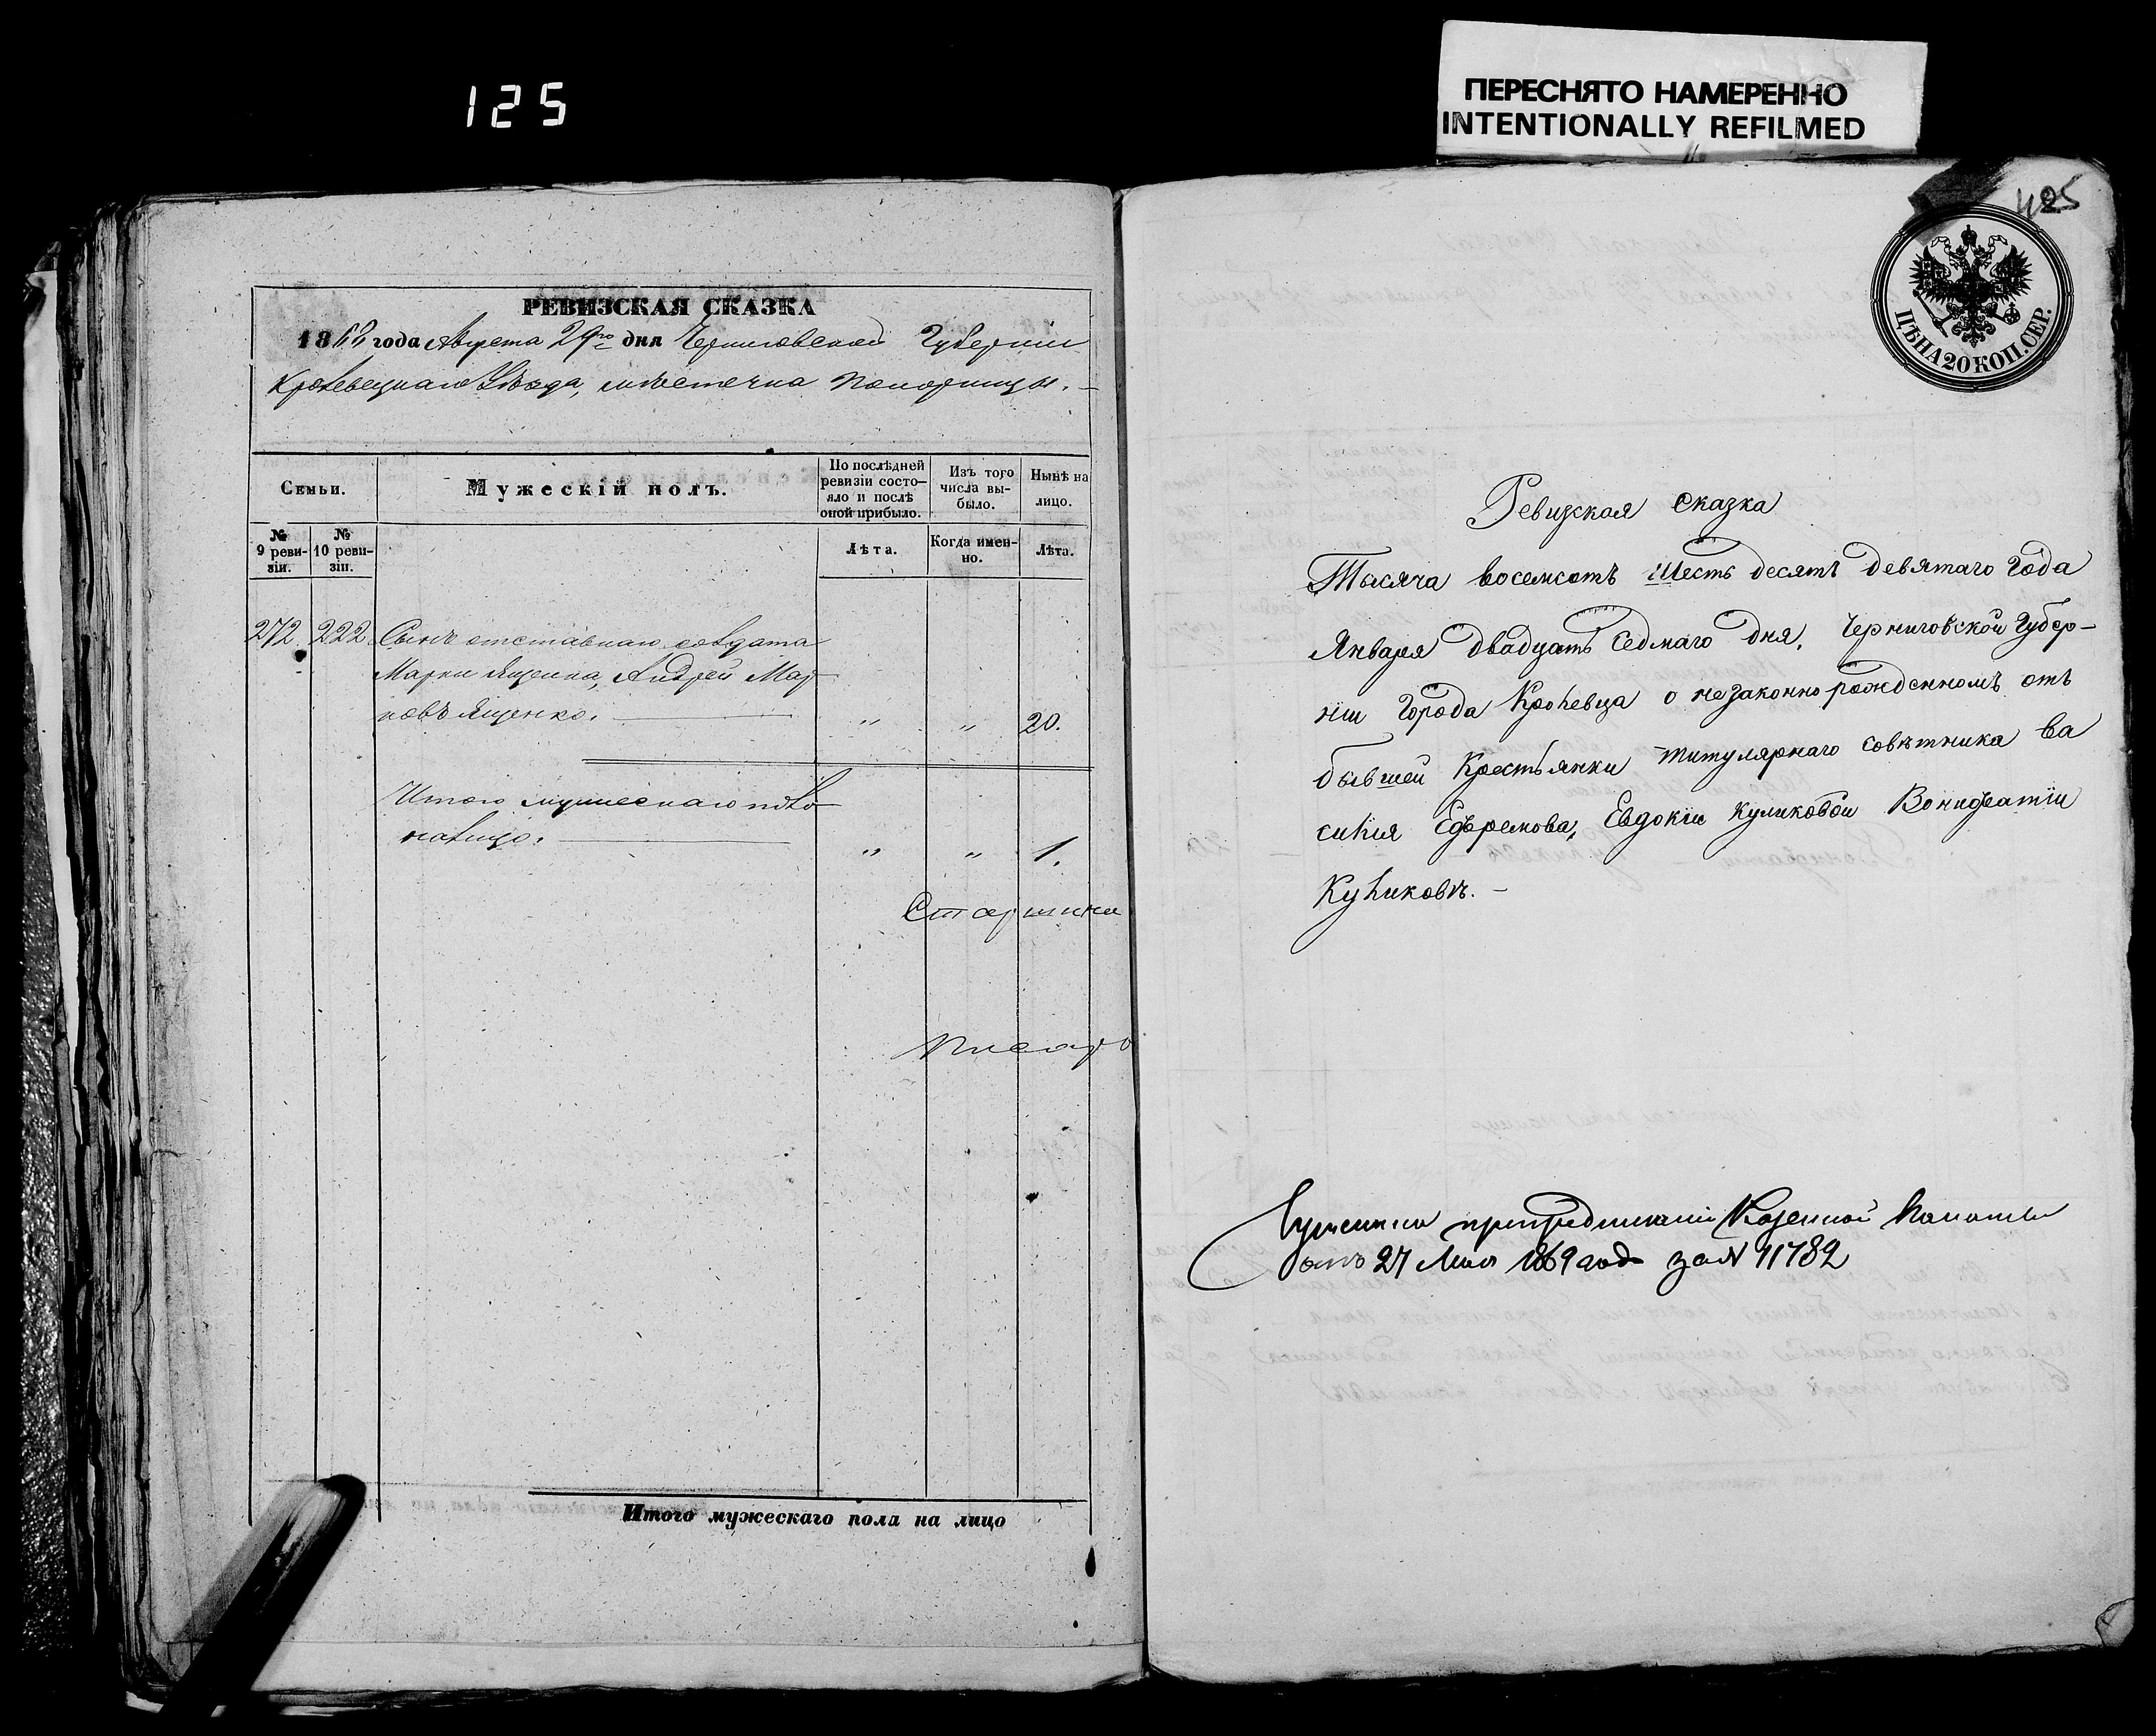 125
ПЕРЕСНЯТО НАМЕРЕННО
INTENTIONALLY REFILMED
РЕВИЗСКАЯ СКАЗКА
Августа 29го дня Черниговской Губерніи
Кролевецкаго Уѣзда, мѣстечка Понорницы.
Семьи.
Мужескій полъ.
По послѣдней
ревизіи состо-
яло и послѣ
оной прибыло.
Изъ того
числа вы-
было.
Нынѣ на
лицо.
№
9 реви-
зіи.
№
10 реви-
зіи.
Лѣта.
Когда имен-
но.
Лѣта.
272. 222. Сынъ отставнаго солдата
Марка Ященка, Андрей Мар-
ковъ Ященко. „ „ 20.
Итого мужескаго пола
налицо. „ „ 1.
Старшина
Писарь
Итого мужескаго пола на лицо
425
ЦѢНА 20 КОП. СЕР.
Ревизская Сказка
Тысяча восемсотъ Шесть десятъ девятаго Года
Января двадцать Седмаго дня, Черниговской Губер-
ніи Города Кролевца о незаконнорожденномъ отъ
бывшей Крестьянки титулярнаго совѣтника Ва
силія Ефремова, Евдокіи Куликовой Вонифатіи
Куликовѣ. —
предписаніи Казенной Палаты
отъ 27 Мая 1869 года за № 11782